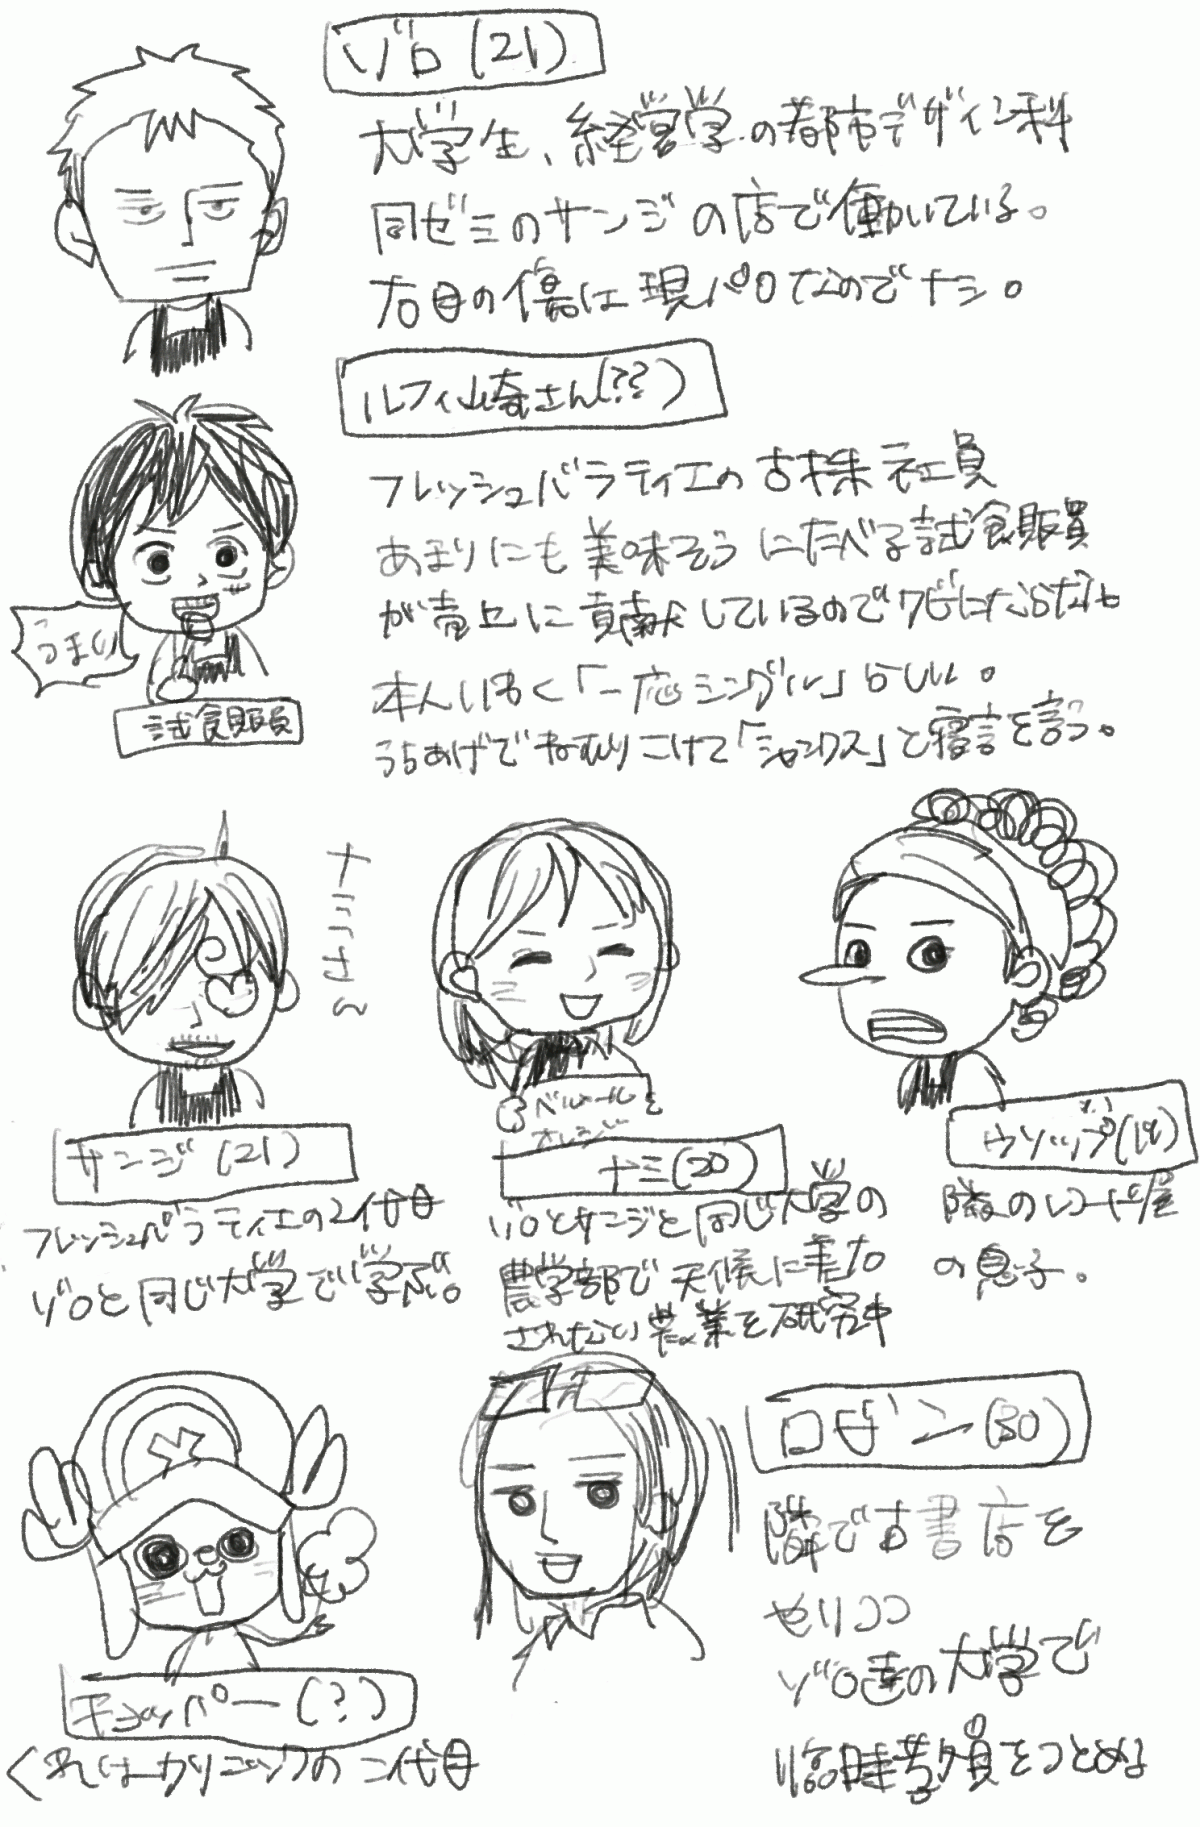 ゾロ(21)
大学生、経営学の都市デザイン科
同ゼミのサンジの店で働いている。
右目の傷は現パロなのでナシ。
ルフィ山崎さん(??)
フレッシュバラティエの古株社員
あまりにも美味そうにたべる試食販員
が売上に貢献しているのでクビにならない
本人いわく「一応シングル」らしい。
うちあげでねむりこけて「シャンクス」と寝言を言う。
うまい
試食販員
ナミさん
サンジ(21)
フレッシュバラティエの2代目
ゾロと同じ大学で学ぶ。
ベルメール
オレンジ
ナミ(20)
ゾロとサンジと同じ大学の
農学部で天候に左右
されない農業を研究中
ウソップ(19)
隣のレコード屋
の息子。
チョッパー(?)
くれはクリニックの二代目
ロビン(30)
隣で古書店を
やりつつ
ゾロ達の大学で
臨時考員をつとめる